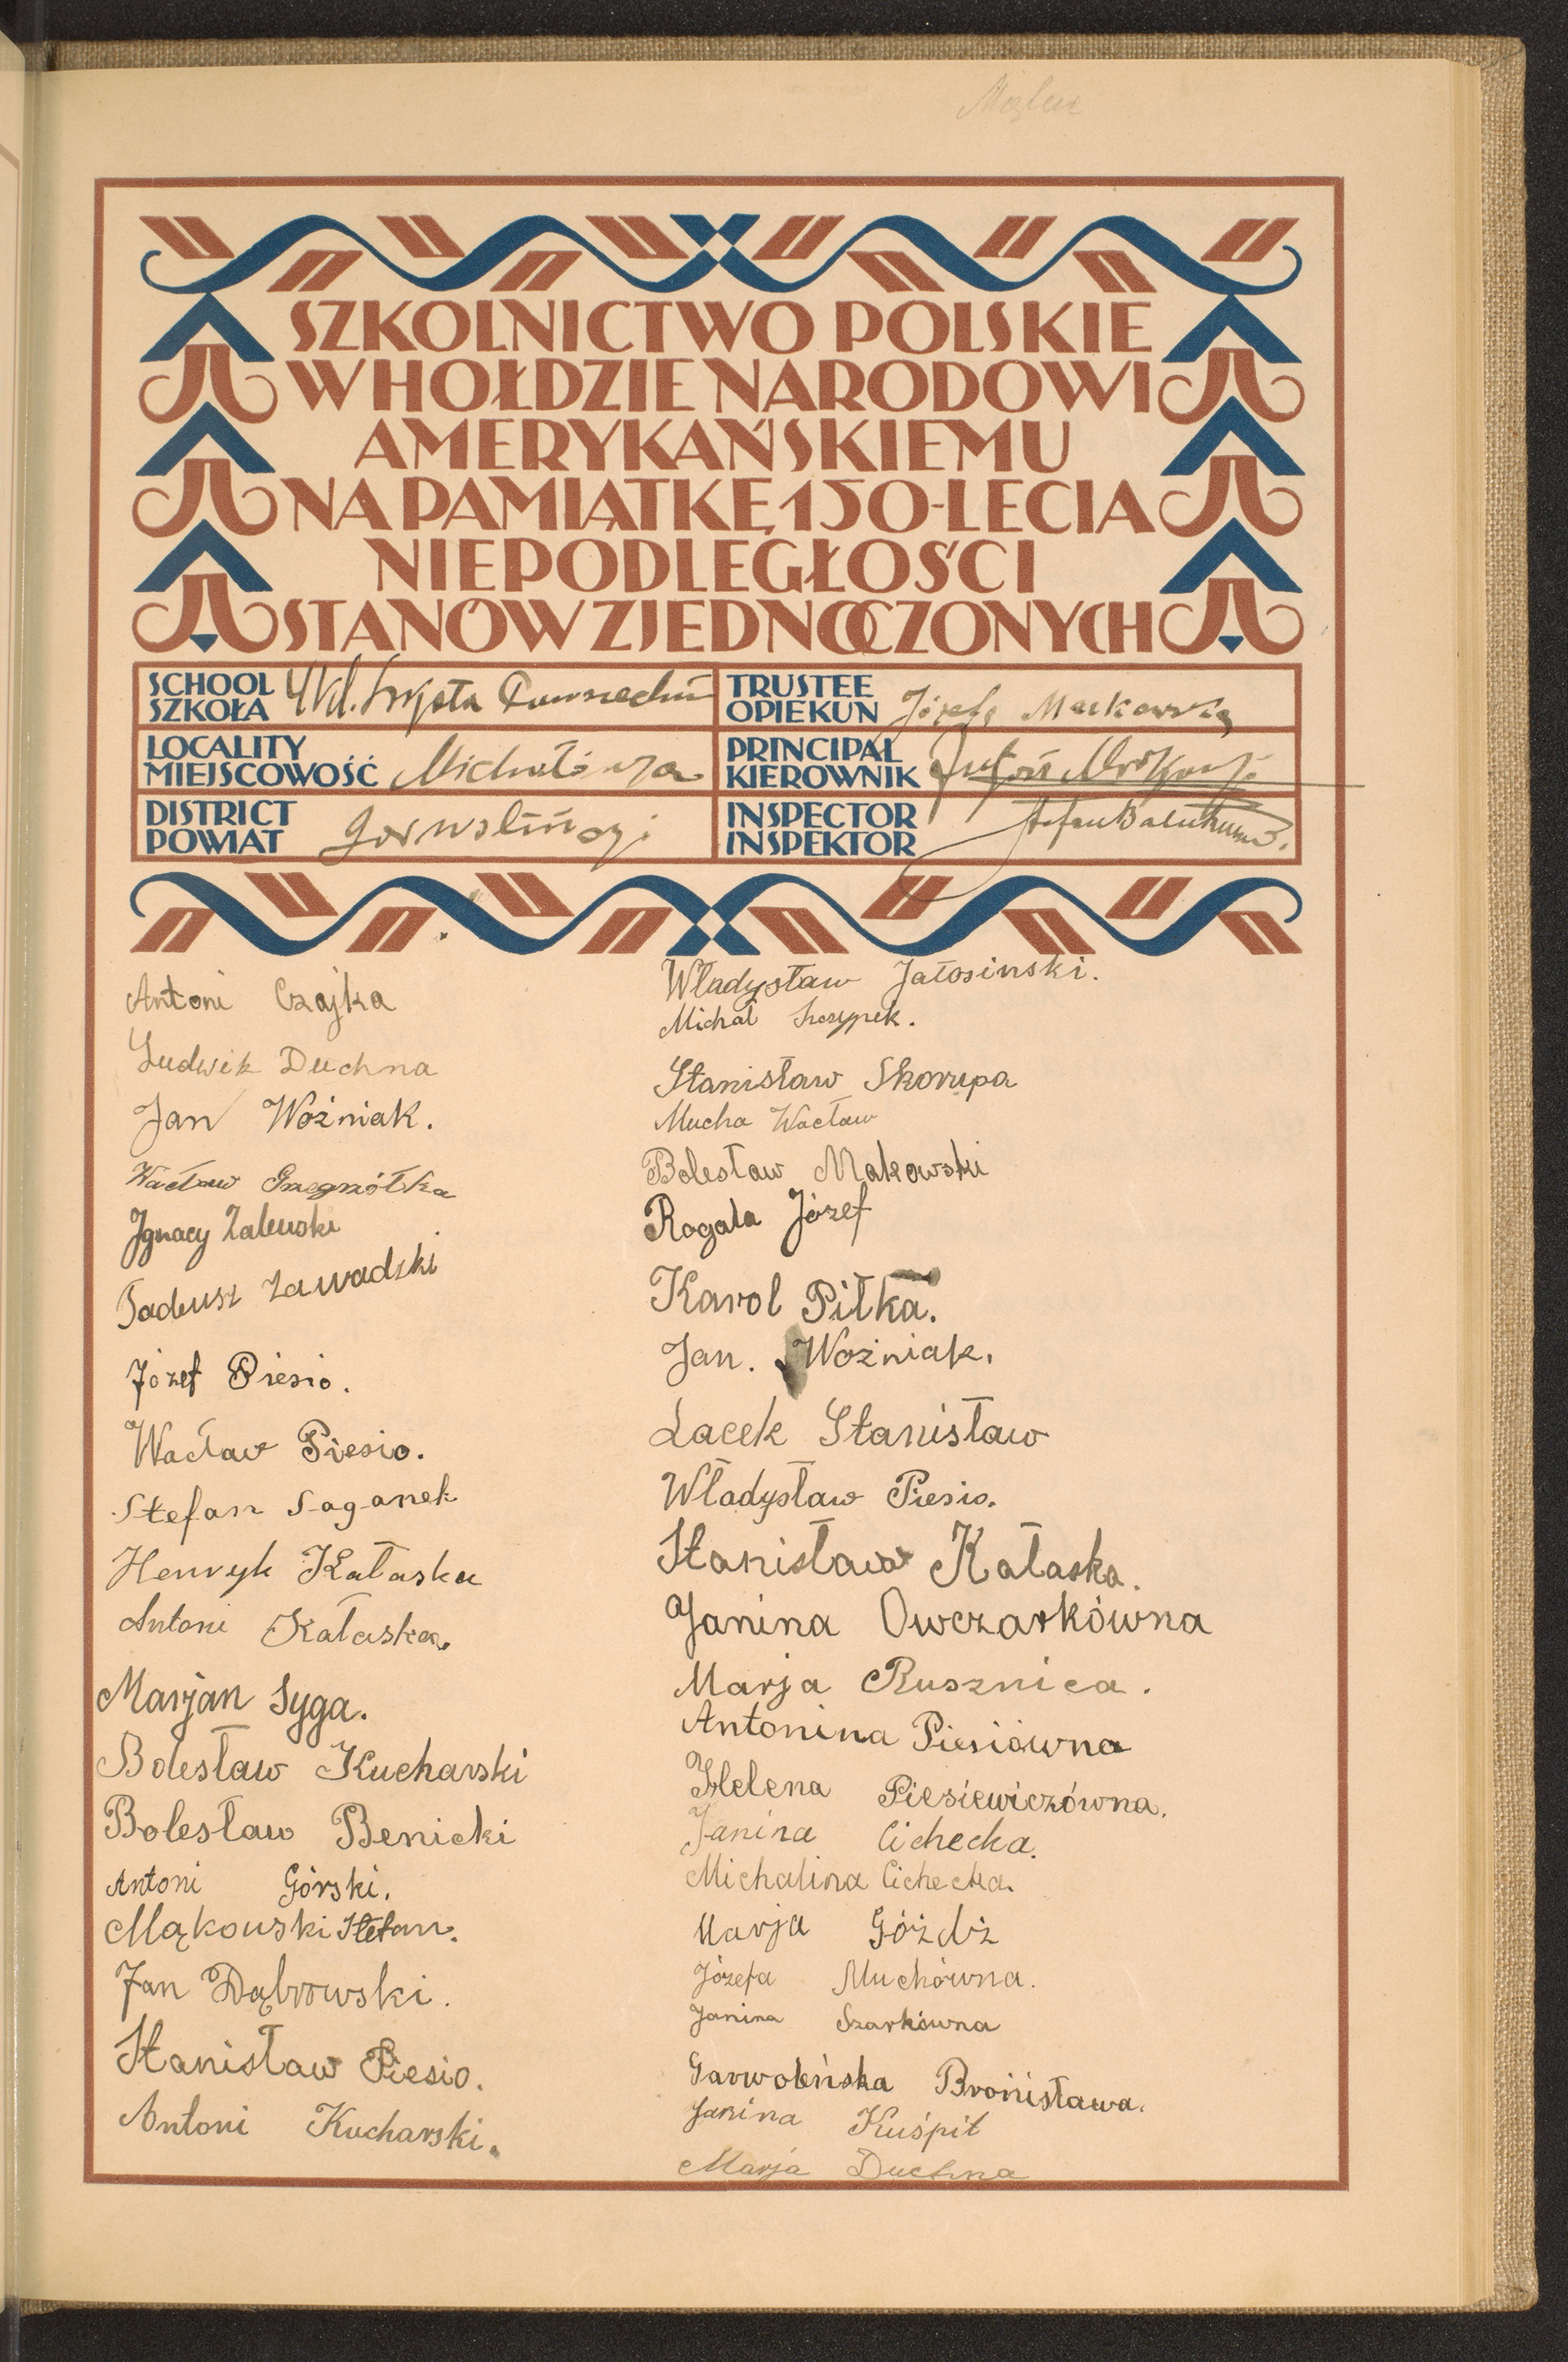 SZKOLNICTWO POLSKIE
W HOŁDZIE NARODOWI
AMERYKAŃSKIEMU
NA PAMIĄTKĘ 150-LECIA
NIEPODLEGŁOŚCI
STANÓW ZJEDNOCZONYCH
SCHOOL
SZKOŁA
TRUSTEE
OPIEKUN
Józefa Mackowska
LOCALITY
MIEJSCOWOŚĆ
Michałówka
PRINCIPAL
KIEROWNIK
DISTRICT
POWIAT
Garwoliński
INSPECTOR
INSPEKTOR
Antoni Czajka
Ludwik Duchna
Jan Woźniak.
Wacław Gregrółka
Ignacy Zalewski
Tadeusz Zawadzki
Józef Piesio.
Wacław Piesio.
Stefan Saganek
Henryk Kałaska
Antoni Kałaska.
Marjan Syga.
Bolesław Kucharski
Bolesław Benicki
Antoni Górski.
Mąkowski Stefan.
Jan Dąbrowski.
Stanisław Piesio.
Antoni Kucharski.
Władysław Jałosinski.
Michał
Stanisław Skorupa
Mucha Wacław
Bolesław Makowski
Rogala Józef
Karol Piłka.
Jan. Woźniak.
Lacek Stanisław
Władysław Piesio.
Stanisław Kałaska.
Janina Owczarkówna
Marja Rusznica.
Antonina Piesiówna
Helena Piesiewiczówna.
Janina Cichecka.
Michalina Cichecka.
Marja Góźdź
Józefa Muchówna.
Janina Szarkówna
Garwoleńska Bronisława.
Janina Kuśpit
Marja Duchna